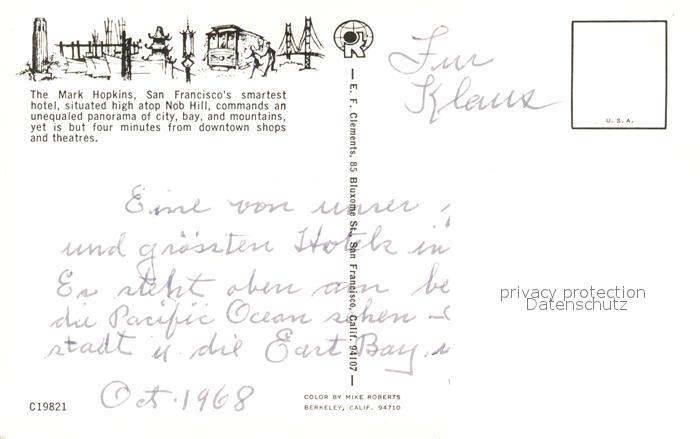 The Mark Hopkins, San Francisco's smartest
hotel, situated high atop Nob Hill, commands an
unequaled panorama of city, bay, and mountains,
yet is but four minutes from downtown shops
and theatres.
E. F. Clements, 85 Bluxome St., San Francisco, Calif. 94107
Für
Klaus
U.S.A.
Eine von unser
und grössten Hotels in
Es steht oben am be
die Pacific Ocean sehen
stadt u die East Bay,
Oct. 1968
privacy protection
Datenschutz
C19821
COLOR BY MIKE ROBERTS
BERKELEY, CALIF. 94710